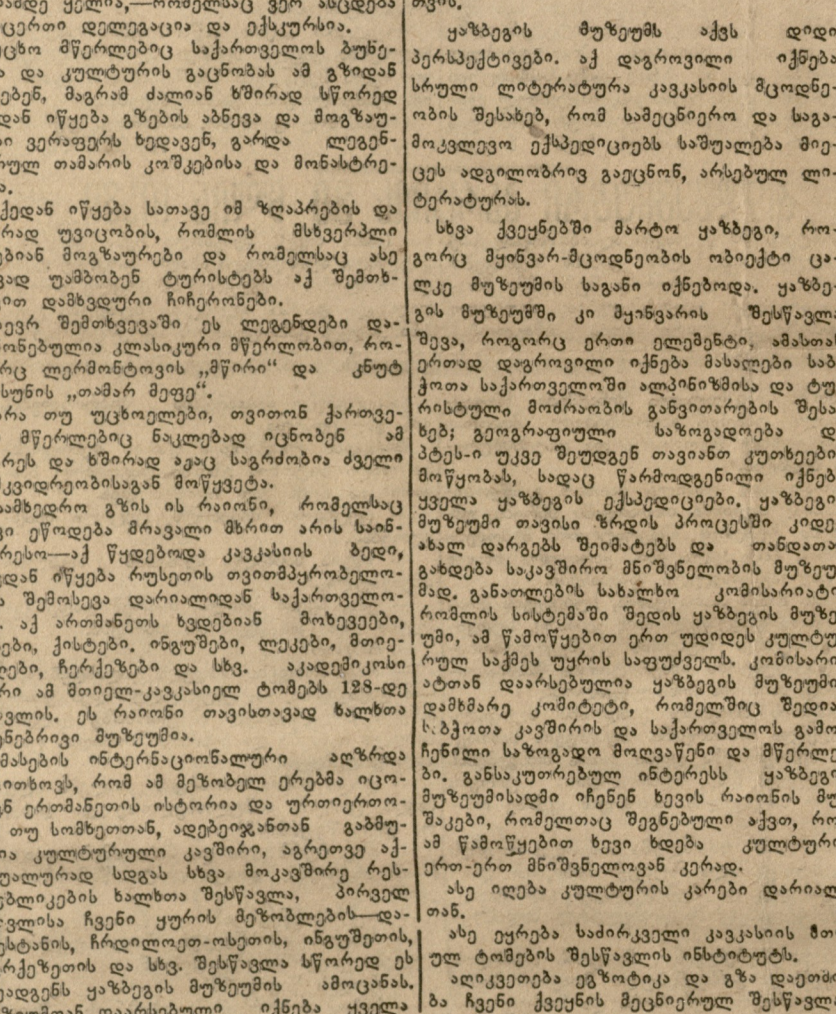 ყელია,—რომელსაც ვერ ასცდება
დელეგაცია და ექსკურსია.
მწერლებიც საქართველოს ბუნე-
და კულტურის გაცნობას ამ გზიდან
მაგრამ ძალიან ხშირად სწორედ
იწყება გზების აბნევა და მოგზაუ-
ვერაფერს ხედავენ, გარდა ლეგენ-
თამარის კოშკებისა და მონასტრე-
იწყება სათავე იმ ზღაპრების და
უვიცობის, რომლის მსხვერპლი
მოგზაურები და რომელსაც ასე
უამბობენ ტურისტებს აქ შემთხ-
დამხვდური ჩიჩერონები.
შემთხვევაში ეს ლეგენდები და-
კლასიკური მწერლობით, რო-
ლერმონტოვის „მწირი“ და კნუტ
„თამარ მეფე“.
თუ უცხოელები, თვითონ ქართვე-
მწერლებიც ნაკლებად იცნობენ ამ
და ხშირად აქაც საგრძობია ძველი
მოწყვეტა.
გზის ის რაიონი, რომელსაც
ეწოდება მრავალი მხრით არის საინ-
წყდებოდა კავკასიის ბედი,
იწყება რუსეთის თვითმპყრობელო-
შემოსევა დარიალიდან საქართველო-
აქ ართმანეთს ხვდებიან მოხევეები,
ქისტები. ინგუშები, ლეკები, მთიე-
ჩერქეზები და სხვ. აკადემიკოსი
ამ მთიელ-კავკასიელ ტომებს 128-დე
ეს რაიონი თავისთავად ხალხთა
მუზეუმია.
მასების ინტერნაციონალური აღზრდა
რომ ამ მეზობელ ერებმა იცო-
ერთმანეთის ისტორია და ურთიერთო-
თუ სომხეთთან, ადებეიჯანთან გაბმუ-
კულტურული კავშირი, აგრეთვე აქ-
სდგას სხვა მოკავშირე რეს-
ხალხთა შესწავლა, პირველ
ჩვენი ყურის მეზობლების—და-
ჩრდილოეთ-ოსეთის, ინგუშეთის,
და სხვ. შესწავლა სწორედ ეს
ყაზბეგის მუზეუმის ამოცანას.
დაარსებული იქნება ყველა
თვის.
ყაზბეგის მუზეუმს აქვს დიდი
პერსპექტივები. აქ დაგროვილი იქნება
სრული ლიტერატურა კავკასიის მცოდნე-
ობის შესახებ, რომ სამეცნიერო და საგა-
მოკვლევო ექსპედიციებს საშუალება მიე-
ცეს ადგილობრივ გაეცნონ, არსებულ ლი-
ტერატურას.
სხვა ქვეყნებში მარტო ყაზბეგი, რო-
გორც მყინვარ-მცოდნეობის ობიექტი ცა-
ლკე მუზეუმის საგანი იქნებოდა. ყაზბე-
გის მუზეუმში კი მყინვარის შესწავლა
შევა, როგორც ერთი ელემენტი, ამასთან
ერთად დაგროვილი იქნება მასალები საბ
ჭოთა საქართველოში ალპინიზმისა და ტუ
რისტული მოძრაობის განვითარების შესა
ხებ; გეოგრაფიული საზოგადოება დ
პტეს-ი უკვე შეუდგენ თავიანთ კუთხეები
მოწყობას, სადაც წარმოდგენილი იქნებ
ყველა ყაზბეგის ექსპედიციები. ყაზბეგი
მუზეუმი თავისი ზრდის პროცესში კიდე
ახალ დარგებს შეიმატებს და თანდათა
გახდება საკავშირო მნიშვნელობის მუზეუ
მად. განათლების სახალხო კომისარიატი
რომლის სისტემაში შედის ყაზბეგის მუზე
უმი, ამ წამოწყებით ერთ უდიდეს კულტუ
რულ საქმეს უყრის საფუძველს. კომისარი
ატთან დაარსებულია ყაზბეგის მუზეუმი
დამხმარე კომიტეტი, რომელშიც შედია
საბჭოთა კავშირის და საქართველოს გამო
ჩენილი საზოგადო მოღვაწენი და მწერლე
ბი. განსაკუთრებულ ინტერესს ყაზბეგი
მუზეუმისადმი იჩენენ ხევის რაიონის მუ
შაკები, რომელთაც შეგნებული აქვთ, რო
ამ წამოწყებით ხევი ხდება კულტური
ერთ-ერთ მნიშვნელოვან კერად.
ასე იღება კულტურის კარები დარიალ
თან.
ასე ეყრება საძირკველი კავკასიის მთი
ულ ტომების შესწავლის ინსტიტუტს.
აღიკვეთება ეგზოტიკა და გზა
ბა ჩვენი ქვეყნის მეცნიერულ შესწავლა